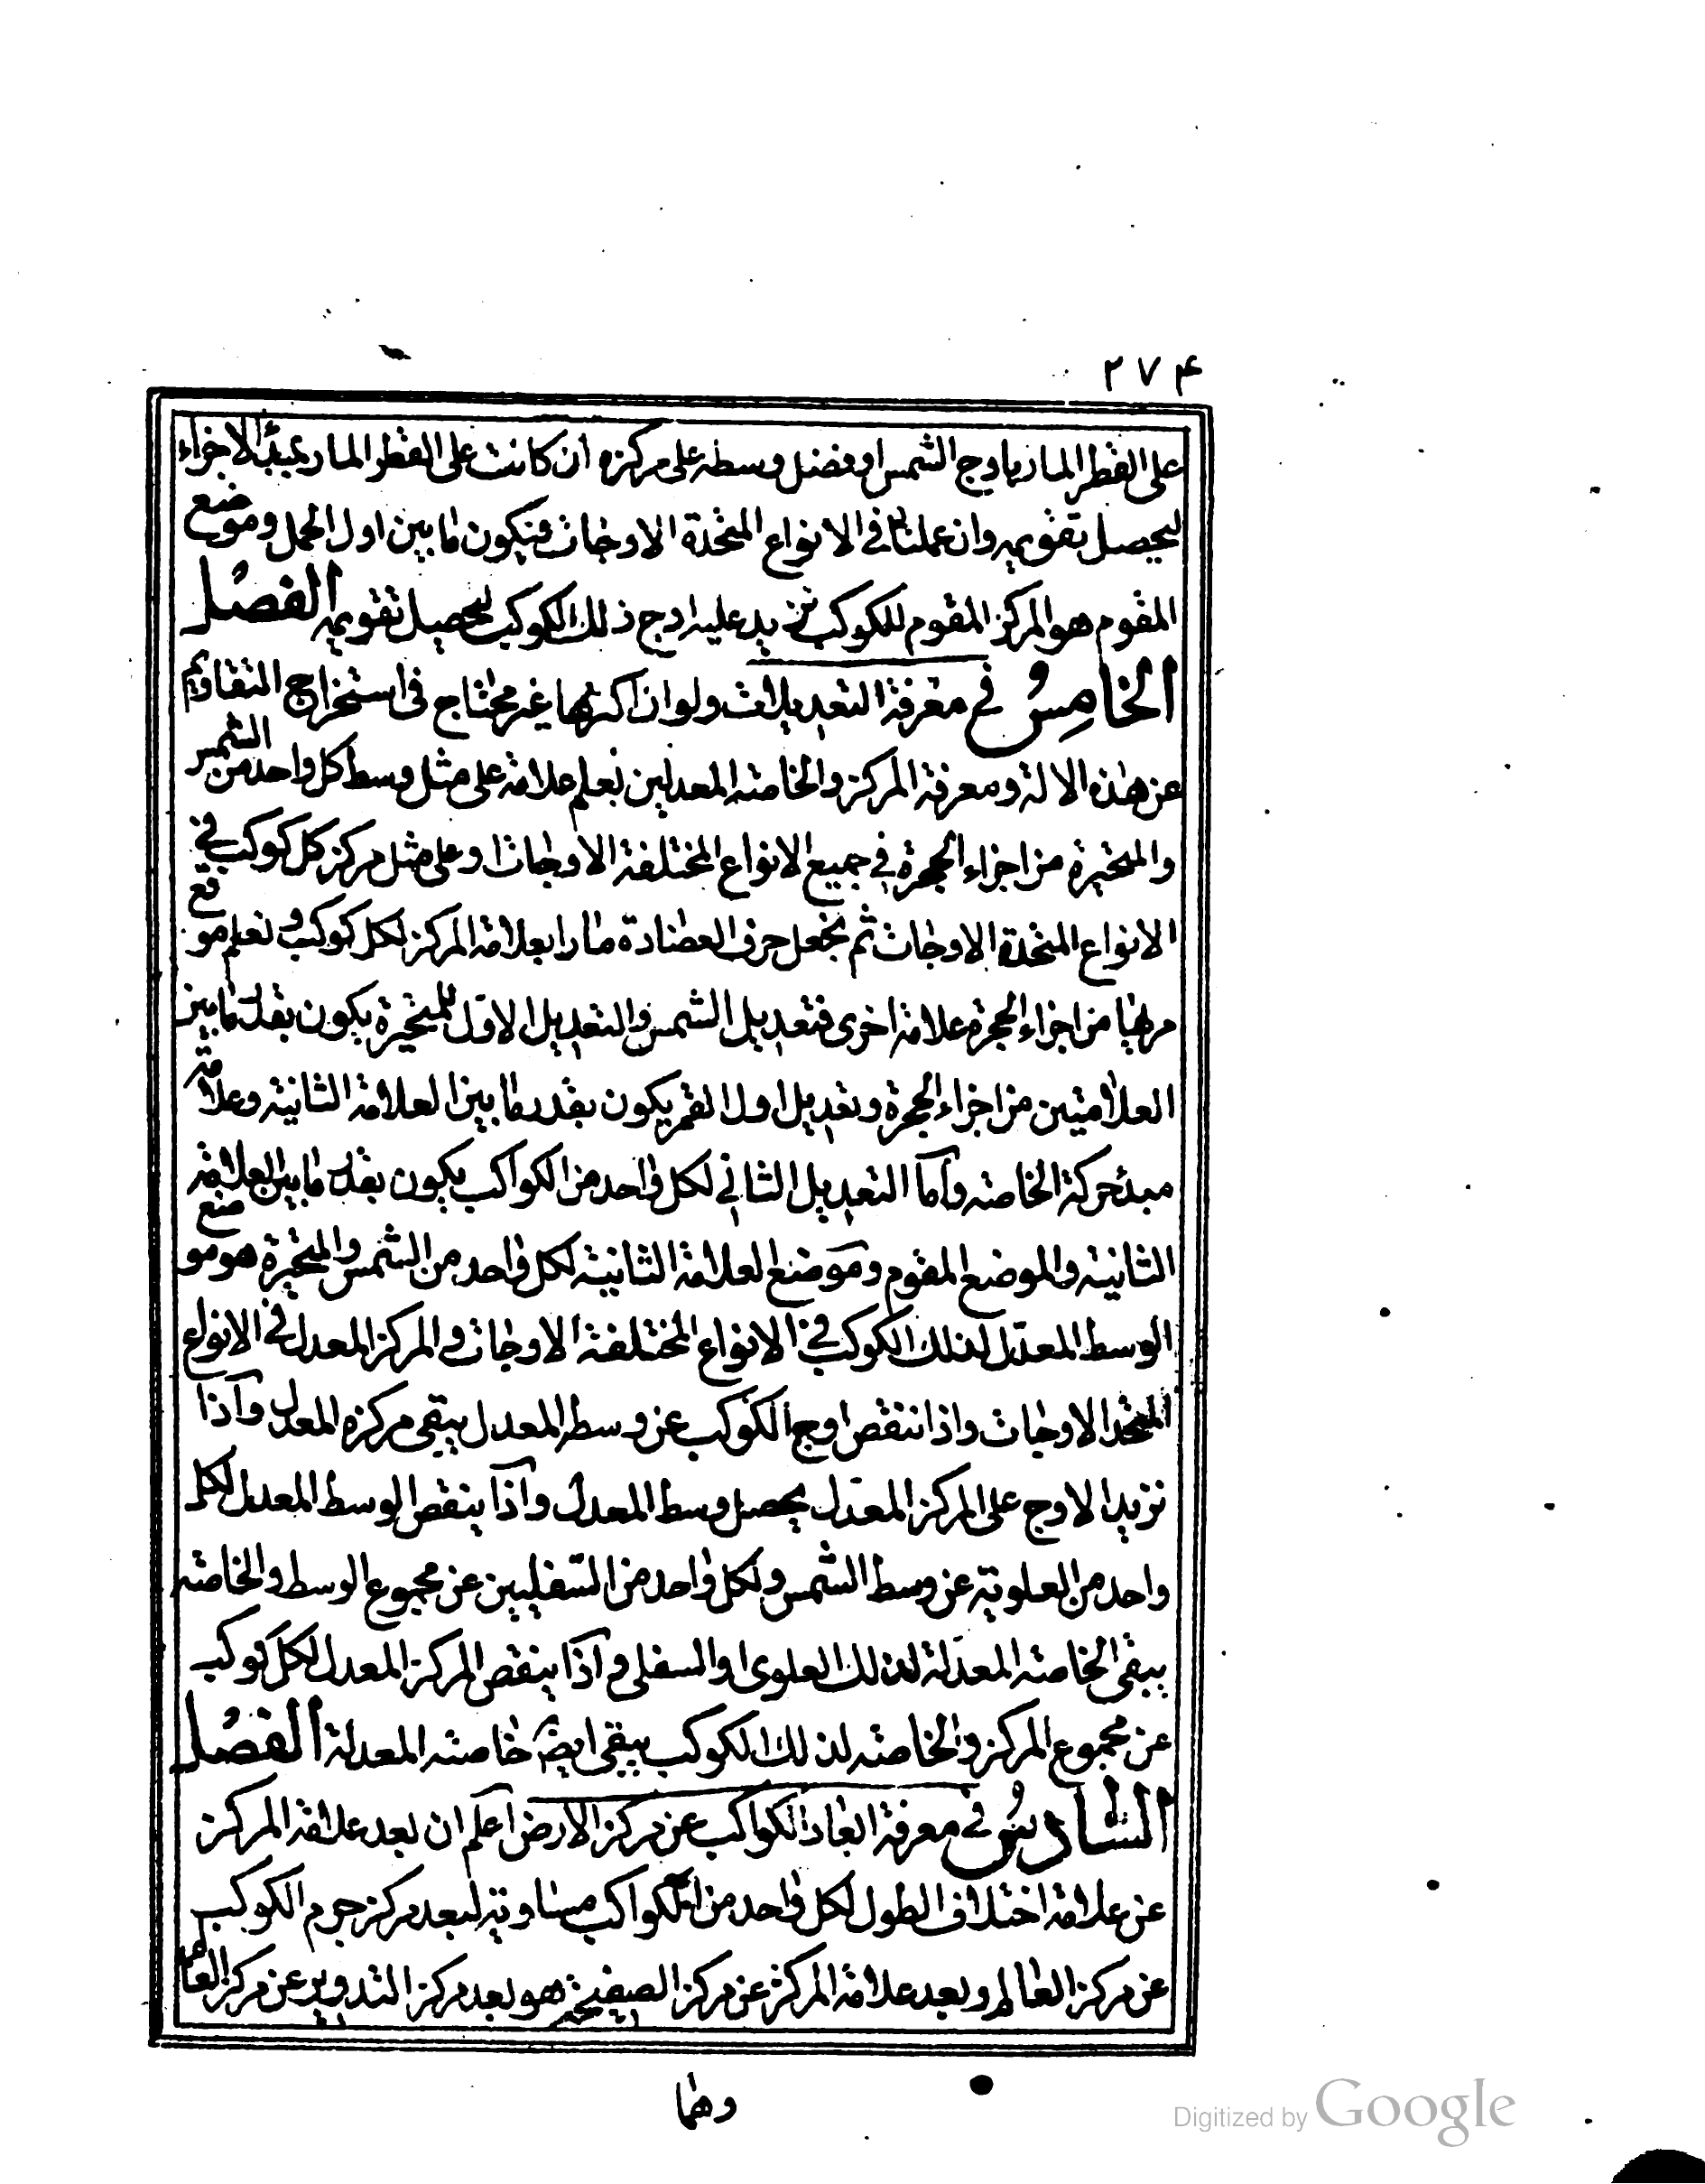 ٢٧۴
على القطر المار باوج الشمس او فضل وسطه على مركزه ان كانت على القطر المار بمبدٔ الاجزاء
ليحصل تقويمه وان عملنا فى الانواع المتحدة الاوجات فيكون ما بين اول الحمل وموضع
المقوم هو المركز المقوم للكوكب نزيد عليه اوج ذلك الكوكب ليحصل تقويمه الفصل
الخامس فى معرفة التعديلات ولو ان اكثرها غير محتاج فى استخراج التقاويم
عن هذه الالة ومعرفة المركز والخاصة المعدلين نعلم علامة على مثل وسط كل واحد من الشمس
والمتحيرة من اجزاء الحجرة فى جميع الانواع المختلفة الاوجات او على مثل مركز كل كوكب فى
الانواع المتحدة الاوجات ثم نجعل حرف العضادة مارا بعلامة المركز لكل كوكب ونعلم موقع
مرها من اجزاء الحجرة علامة اخرى فتعديل الشمس والتعديل الاول للمتحيرة يكون بقدر ما بين
العلامتين من اجزاء الحجرة وتعديل اول القمر يكون بقدر ما بين العلامة الثانية وعلامة
مبدٔ حركة الخاصة واما التعديل الثانى لكل واحد من الكواكب يكون بقدر ما بين العلامة
الثانية والموضع المقوم وموضع العلامة الثانية لكل واحد من الشمس والمتحيرة هو موضع
الوسط المعدل لذلك الكوكب فى الانواع المختلفة الاوجات والمركز المعدل فى الانواع
المتحد الاوجات واذا ننقص اوج الكوكب عن وسطه المعدل يبقى مركزه المعدل واذا
نزيد الاوج على المركز المعدل يحصل وسط المعدل واذا ينقص الوسط المعدل لكل
واحد من العلوية عن وسط الشمس ولكل واحد من السفليين عن مجموع الوسط والخاصة
يبقى الخاصة المعدلة لذلك العلوى او السفلى واذا ينقص المركز المعدل لكل كوكب
عن مجموع المركز والخاصة لذلك الكوكب يبقى ايضا خاصته المعدلة الفصل
السادس فى معرفة ابعاد الكواكب عن مركز الارض اعلم ان بعد علامة المركز
عن علامة اختلاف الطول لكل واحد من الكواكب مساوية لبعد مركز جرم الكوكب
عن مركز العالم وبعد علامة المركز عن مركز الصفيحة هو بعد مركز التدوير عن مركز العالم
وهما
Digitized by Google